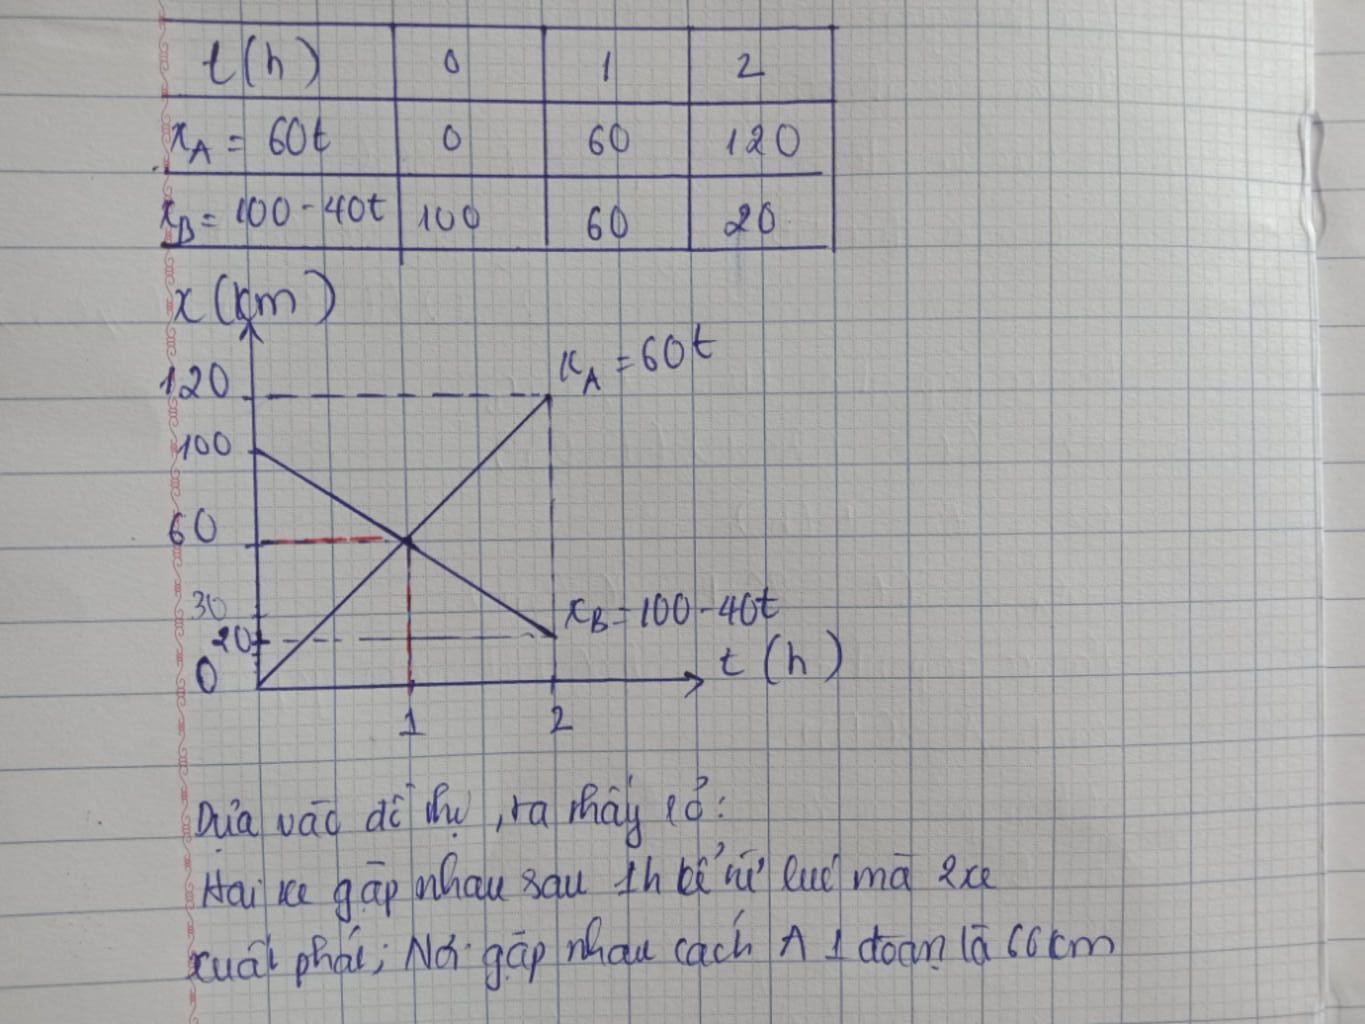 t(h) 0 1 2
x_A = 60t 0 60 120
x_B = 100 - 40t 100 60 20
x (km)
x_A = 60t
120
100
60
30
x_B = 100 - 40t
20
t (h)
0
1 2
Dựa vào đồ thị, ta thấy rõ:
Hai xe gặp nhau sau 1h kể từ lúc mà 2 xe
xuất phát; Nơi gặp nhau cách A 1 đoạn là 60km